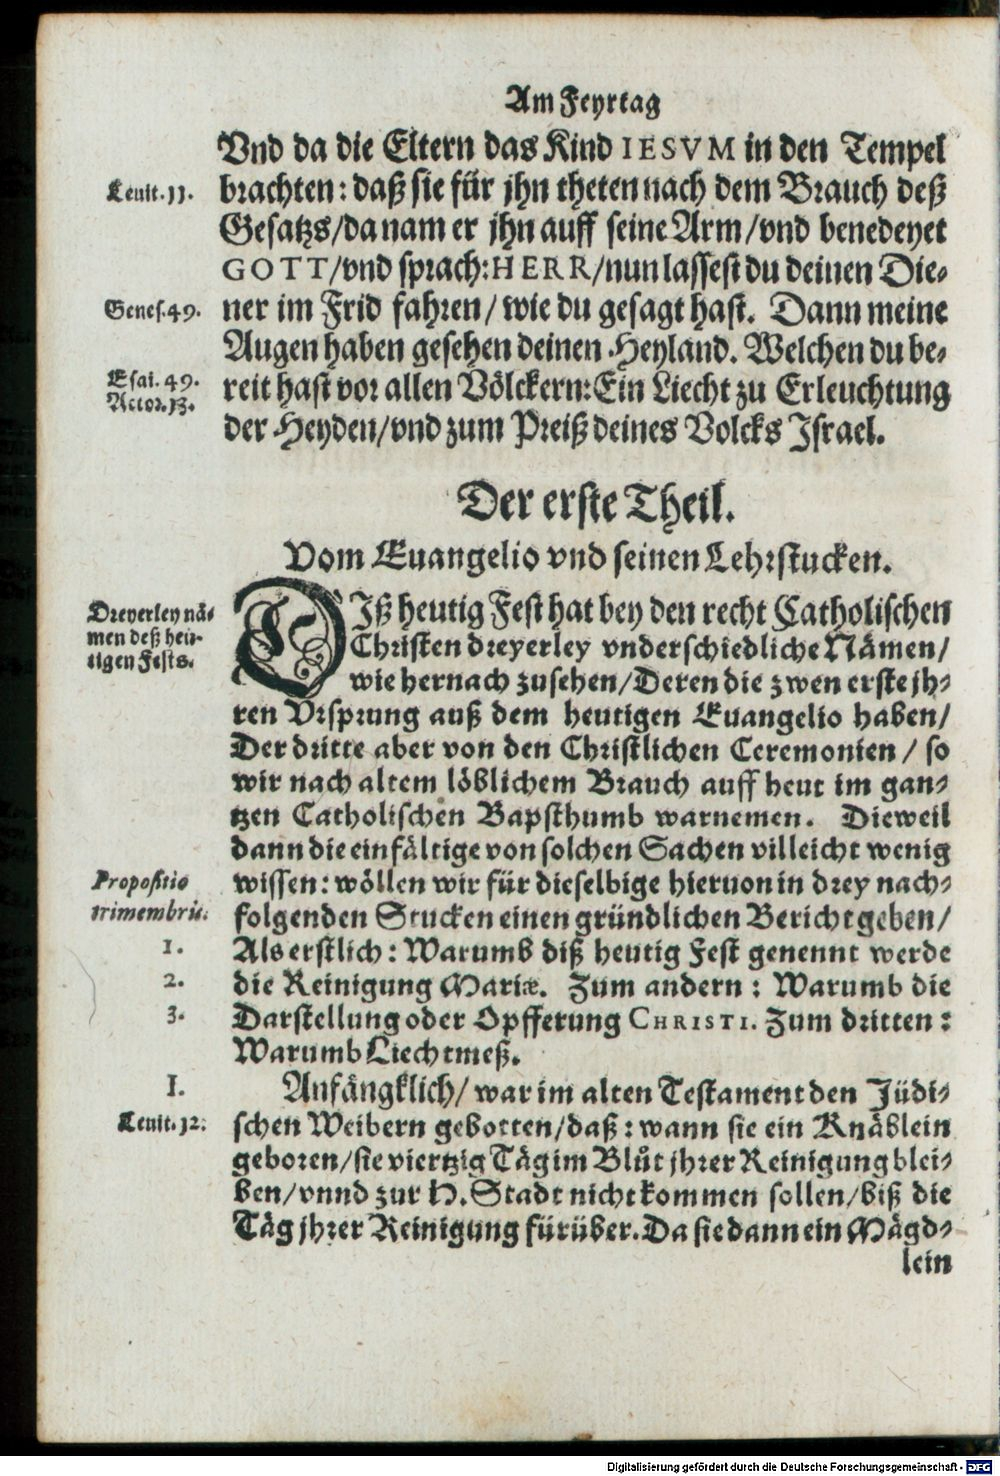 Am Feyrtag
Vnd da die Eltern das Kind IESVM in den Tempel
Levit. 11.
brachten: daß sie für jhn theten nach dem Brauch deß
Gesatzs/ da nam er jhn auff seine Arm/ vnd benedeyet
GOTT/ vnd sprach: HERR/ nun lassest du deinen Die-
Genes. 49.
ner im Frid fahren/ wie du gesagt hast. Dann meine
Augen haben gesehen deinen Heyland. Welchen du be-
Esai. 49.
Actor. 13.
reit hast vor allen Völckern: Ein Liecht zu Erleuchtung
der Heyden/ vnd zum Preiß deines Volcks Israel.
Der erste Theil.
Vom Euangelio vnd seinen Lehrstucken.
Dreyerley nä-
men deß heu-
tigen Fests.
DIß heutig Fest hat bey den recht Catholischen
Christen dreyerley vnderschiedliche Nämen/
wie hernach zusehen/ Deren die zwen erste jh-
ren Vrsprung auß dem heutigen Euangelio haben/
Der dritte aber von den Christlichen Ceremonien/ so
wir nach altem löblichem Brauch auff heut im gan-
tzen Catholischen Bapsthumb warnemen. Dieweil
dann die einfältige von solchen Sachen villeicht wenig
Propositio
trimembris.
wissen: wöllen wir für dieselbige hieruon in drey nach-
folgenden Stucken einen gründlichen Bericht geben/
1.
Als erstlich: Warumb diß heutig Fest genennt werde
2.
die Reinigung Mariæ. Zum andern: Warumb die
3.
Darstellung oder Opfferung CHRISTI. Zum dritten:
Warumb Liechtmeß.
I.
Anfängklich/ war im alten Testament den Jüdi-
Levit. 12.
schen Weibern gebotten/ daß: wann sie ein Knäblein
geboren/ sie viertzig Täg im Blůt jhrer Reinigung blei-
ben/ vnnd zur H. Stadt nicht kommen sollen/ biß die
Täg jhrer Reinigung fürüber. Da sie dann ein Mägd-
lein
Digitalisierung gefördert durch die Deutsche Forschungsgemeinschaft - DFG